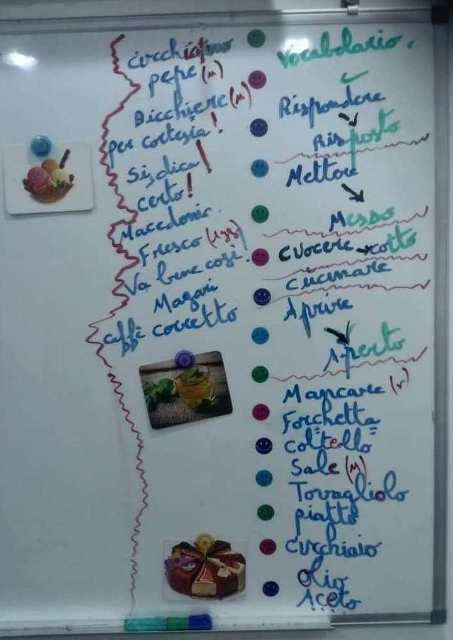 cucchiaino
pepe (M)
Bicchiere (M)
per cortesia!
Si, dica!
certo!
Macedonia
Fresco (agg)
Va bene così!
Magari
caffè corretto
Vocabolario.
Rispondere
Risposto
Mettere
Messo
cuocere → cotto
cucinare
Aprire
Aperto
Mancare (v)
Forchetta
Coltello
Sale (M)
Tovagliolo
piatto
cucchiaio
Olio
Aceto